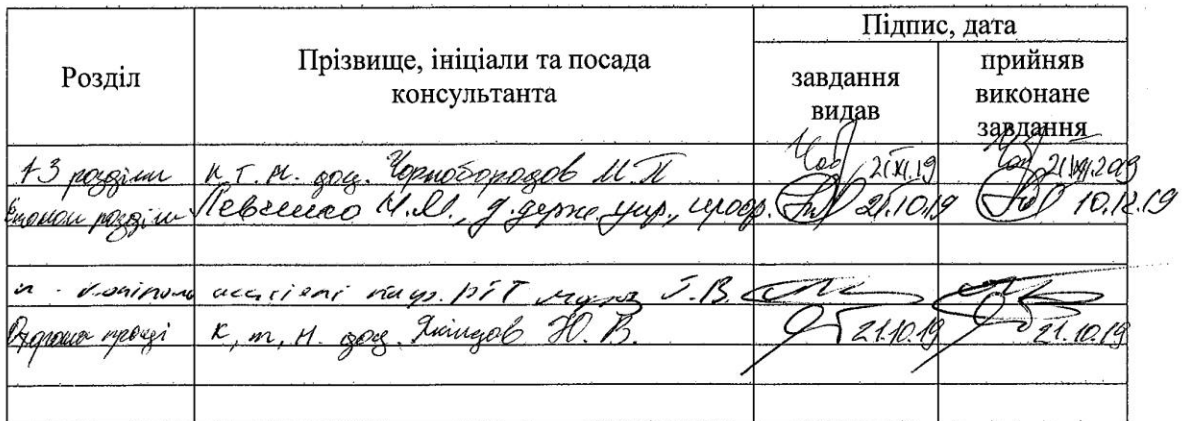 Розділ
Прізвище, ініціали та посада
консультанта
Підпис, дата
завдання
видав
прийняв
виконане
завдання
1-3 розділи к.т.н. доц. Чорнобородов М.П 21.XI.19
Економ розділи Левченко д.держ.упр., проф. 21.10.19 10.12.19
н - контроль асистент каф. РТТ
Охорона праці к.т.н. доц. Ю.В. 21.10.19 21.10.19